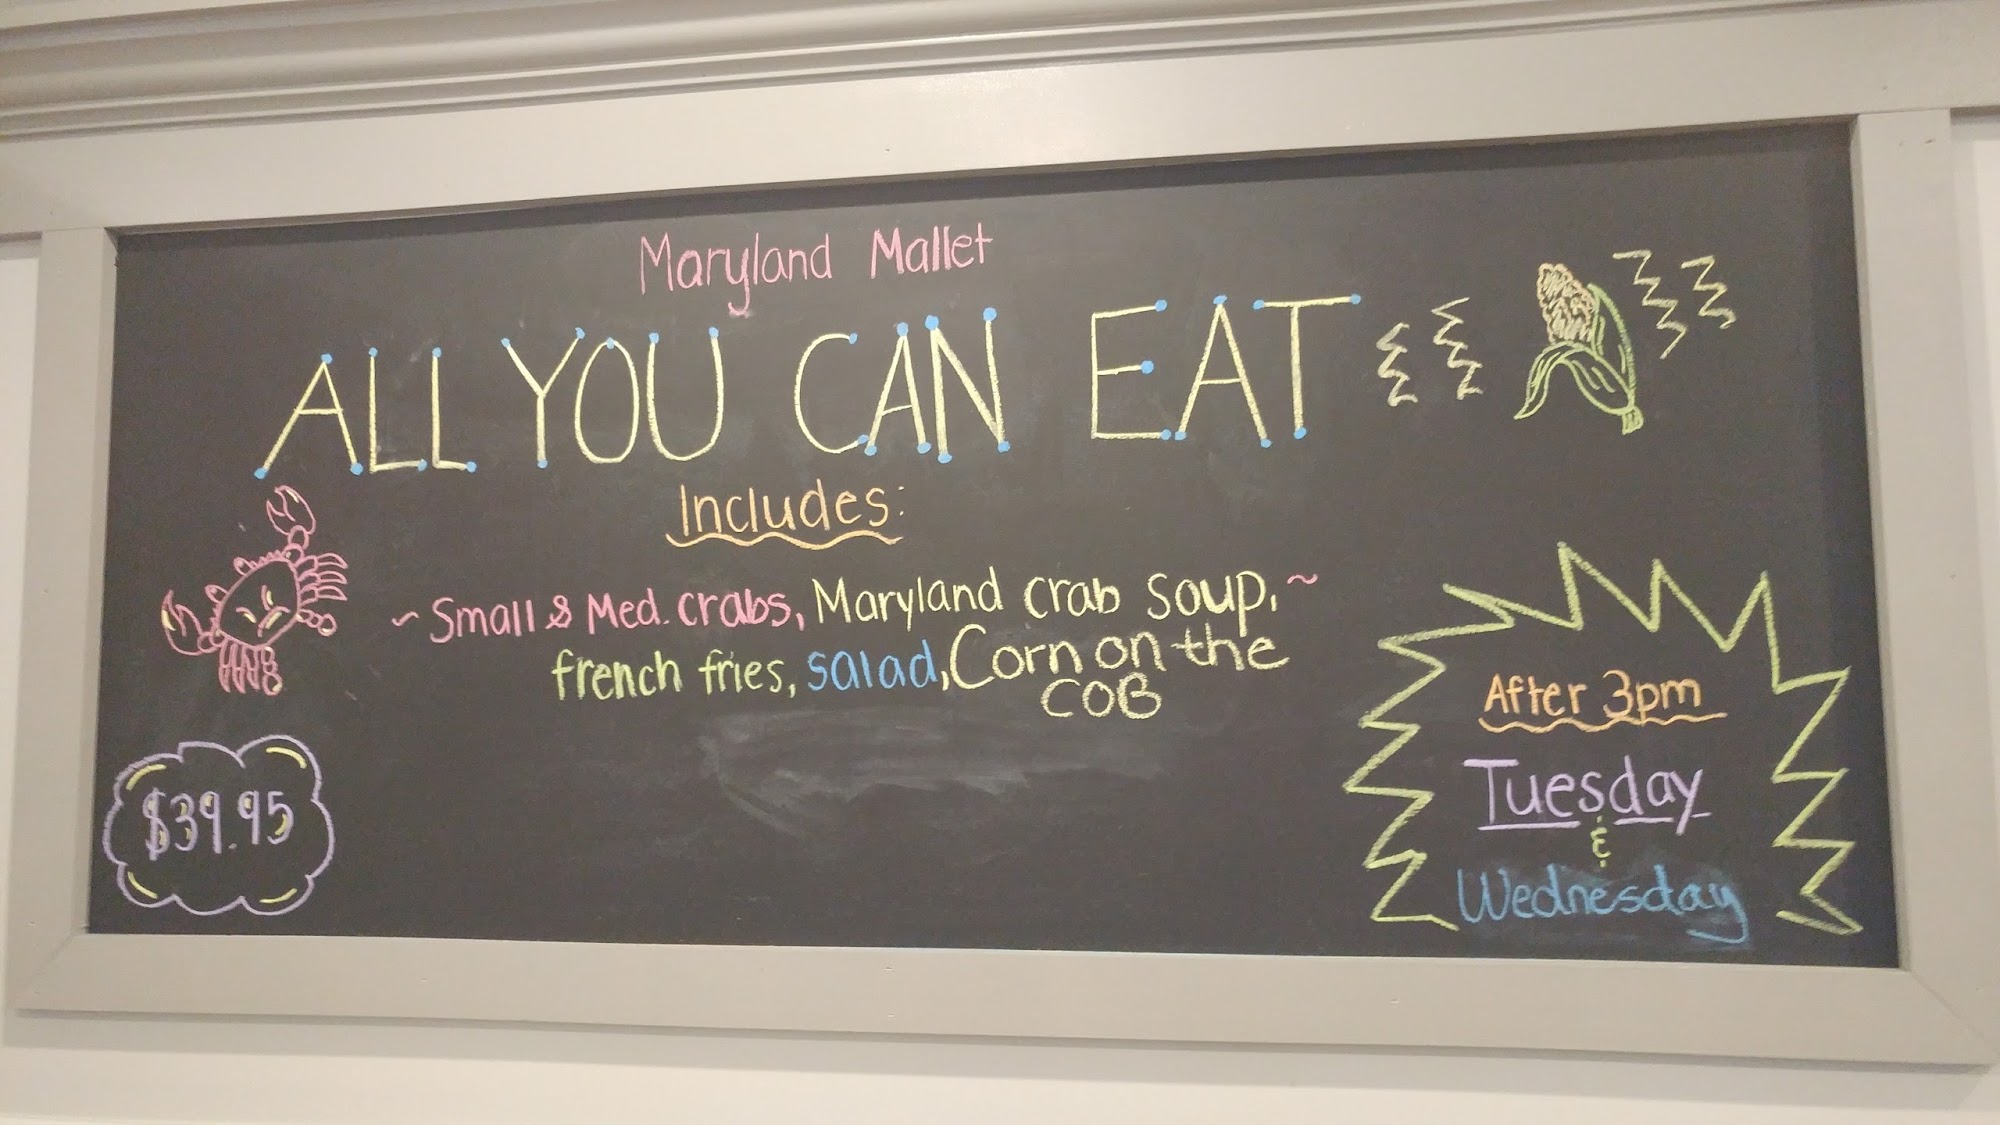 Maryland Mallet
ALL YOU CAN EAT
Includes:
~ Small & Med. crabs, Maryland crab soup, ~
french fries, salad, Corn on the
COB
$39.95
After 3pm
Tuesday
&
Wednesday